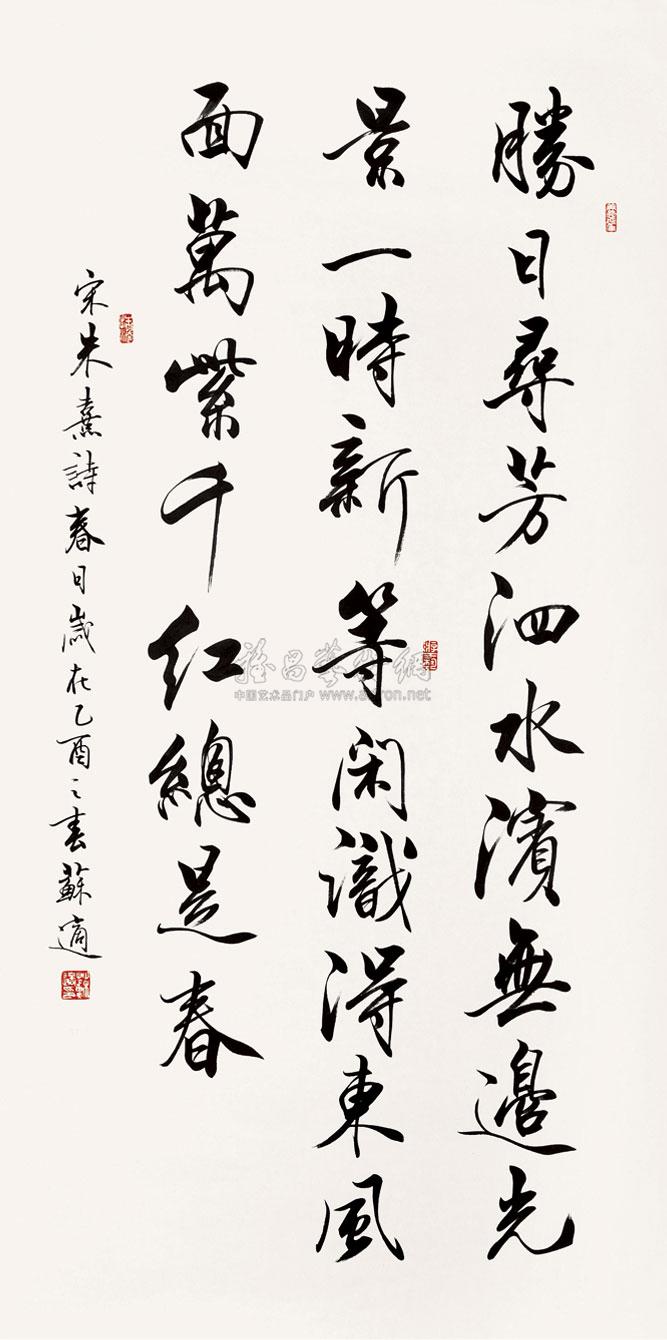 勝日尋芳泗水濱無邊光
景一時新等闲識得東風
面萬紫千红總是春
宋朱熹詩春日歲在乙酉之春蘇適
中国艺术品门户 www.aaron.net